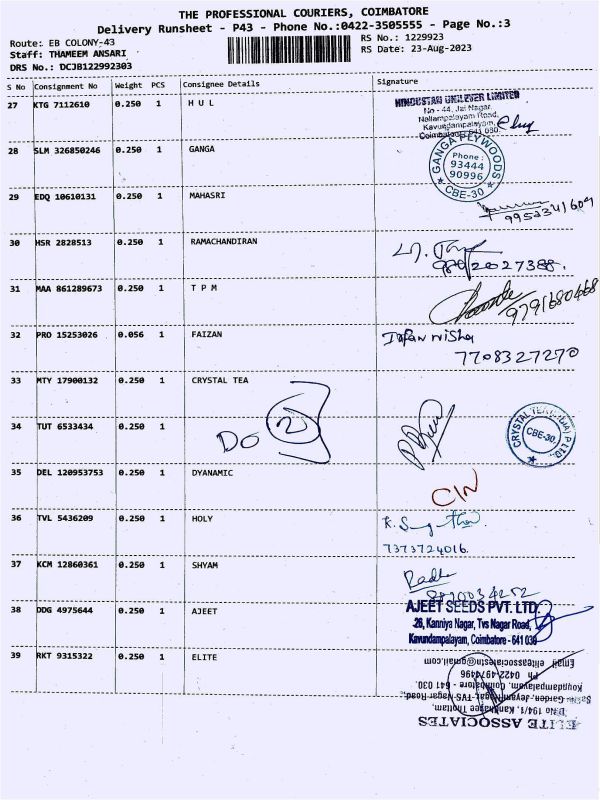 THE PROFESSIONAL COURIERS, COIMBATORE
Delivery Runsheet - P43 - Phone No.:0422-3505555 - Page No.:3
Route: EB COLONY-43
RS No.: 1229923
Staff: THAMEEM ANSARI
RS Date: 23-Aug-2023
DRS No.: DCJB122992303
S No Consignment No Weight PCS Consignee Details Signature
27 KTG 7112610 0.250 1 H U L
HINDUSTAN UNILEVER LIMITED
No - 44, Jai Nagar,
Nallampalayam Road,
Kavundampalayam,
Coimbatore - 641 030.
28 SLM 326850246 0.250 1 GANGA
GANGA PLYWOODS
Phone :
93444
90996
CBE-30
29 EDQ 10610131 0.250 1 MAHASRI
9952341609
30 HSR 2828513 0.250 1 RAMACHANDIRAN
31 MAA 861289673 0.250 1 T P M
9791680468
32 PRO 15253026 0.056 1 FAIZAN
Irfan nisha
7708327270
33 MTY 17900132 0.250 1 CRYSTAL TEA
CBE-30.
34 TUT 6533434 0.250 1 Do 2
35 DEL 120953753 0.250 1 DYANAMIC
CIN
36 TVL 5436209 0.250 1 HOLY
7373724016.
37 KCM 12860361 0.250 1 SHYAM
38 DDG 4975644 0.250 1 AJEET
AJEET SEEDS PVT. LTD.
26, Kanniya Nagar, Tvs Nagar Road,
Kavundampalayam, Coimbatore - 641 030
39 RKT 9315322 0.250 1 ELITE
ELITE ASSOCIATES
D.No 194/1, Kanghayee Thottam,
Garden, Jeyam Nagar, TVS-Nagar Road,
Koundampalayam, Coimbatore - 641 030.
Ph 0422-4974496
Email eliteassociatestn@gmail.com